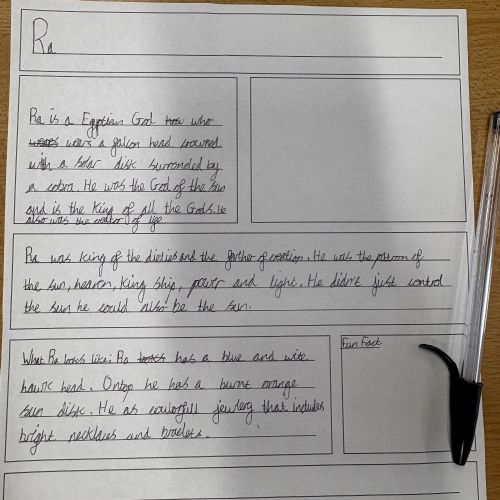 Ra
Ra is a Egyptian God how who
wears wears a falcon head crowned
with a solar disk surronded by
a cobra. He was the God of the sun
and is the King of all the Gods. He
also was the creator of life.
Ra was King of the dieties and the farther of creation. He was the patron of
the sun, heaven, King ship, power and light. He didn't just control
the sun he could also be the sun.
What Ra looks like: Ra looks has a blue and wite
hawk head. Ontop he has a burnt orange
sun disk. He as coulorfull jewlery that includes
bright necklaces and braclets.
Fun Fact